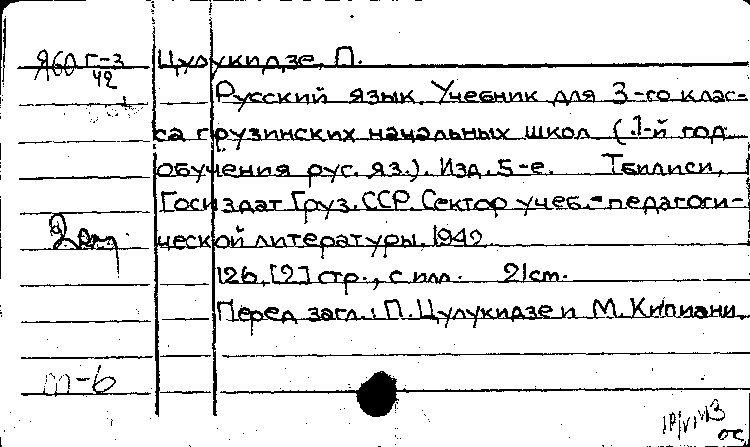 Я60 Г-3 Цулукидзе, П.
42
Русский язык. Учебник для 3-го клас-
са грузинских начальных школ (1-й год
обучения рус. яз.). Изд. 5-е. Тбилиси,
Госиздат Груз. ССР. Сектор учеб.-педагоги-
ческой литературы, 1942
126, [2] стр., с илл. 21см.
Перед загл.: П. Цулукидзе и М. Кипиани.
т-6